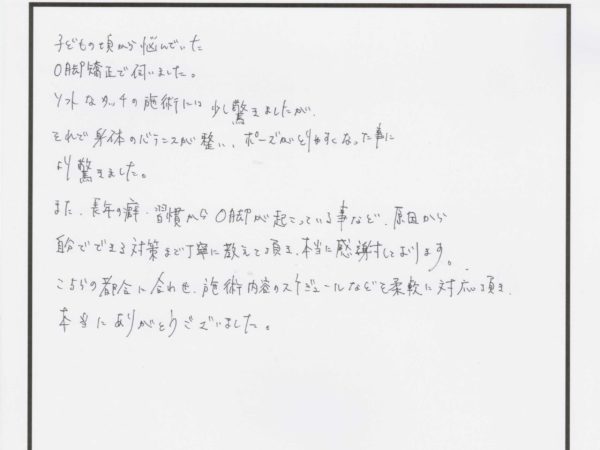 子どもの頃から悩んでいた
O脚矯正で伺いました。
ソフトなタッチの施術には少し驚きましたが、
それで身体のバランスが整い、ポーズがとりやすくなった事に
より驚きました。
また、長年の癖・習慣からO脚が起こっている事など、原因から
自分でできる対策まで丁寧に教えて頂き、本当に感謝しております。
こちらの都合に合わせ、施術内容のスケジュールなども柔軟に対応頂き、
本当にありがとうございました。